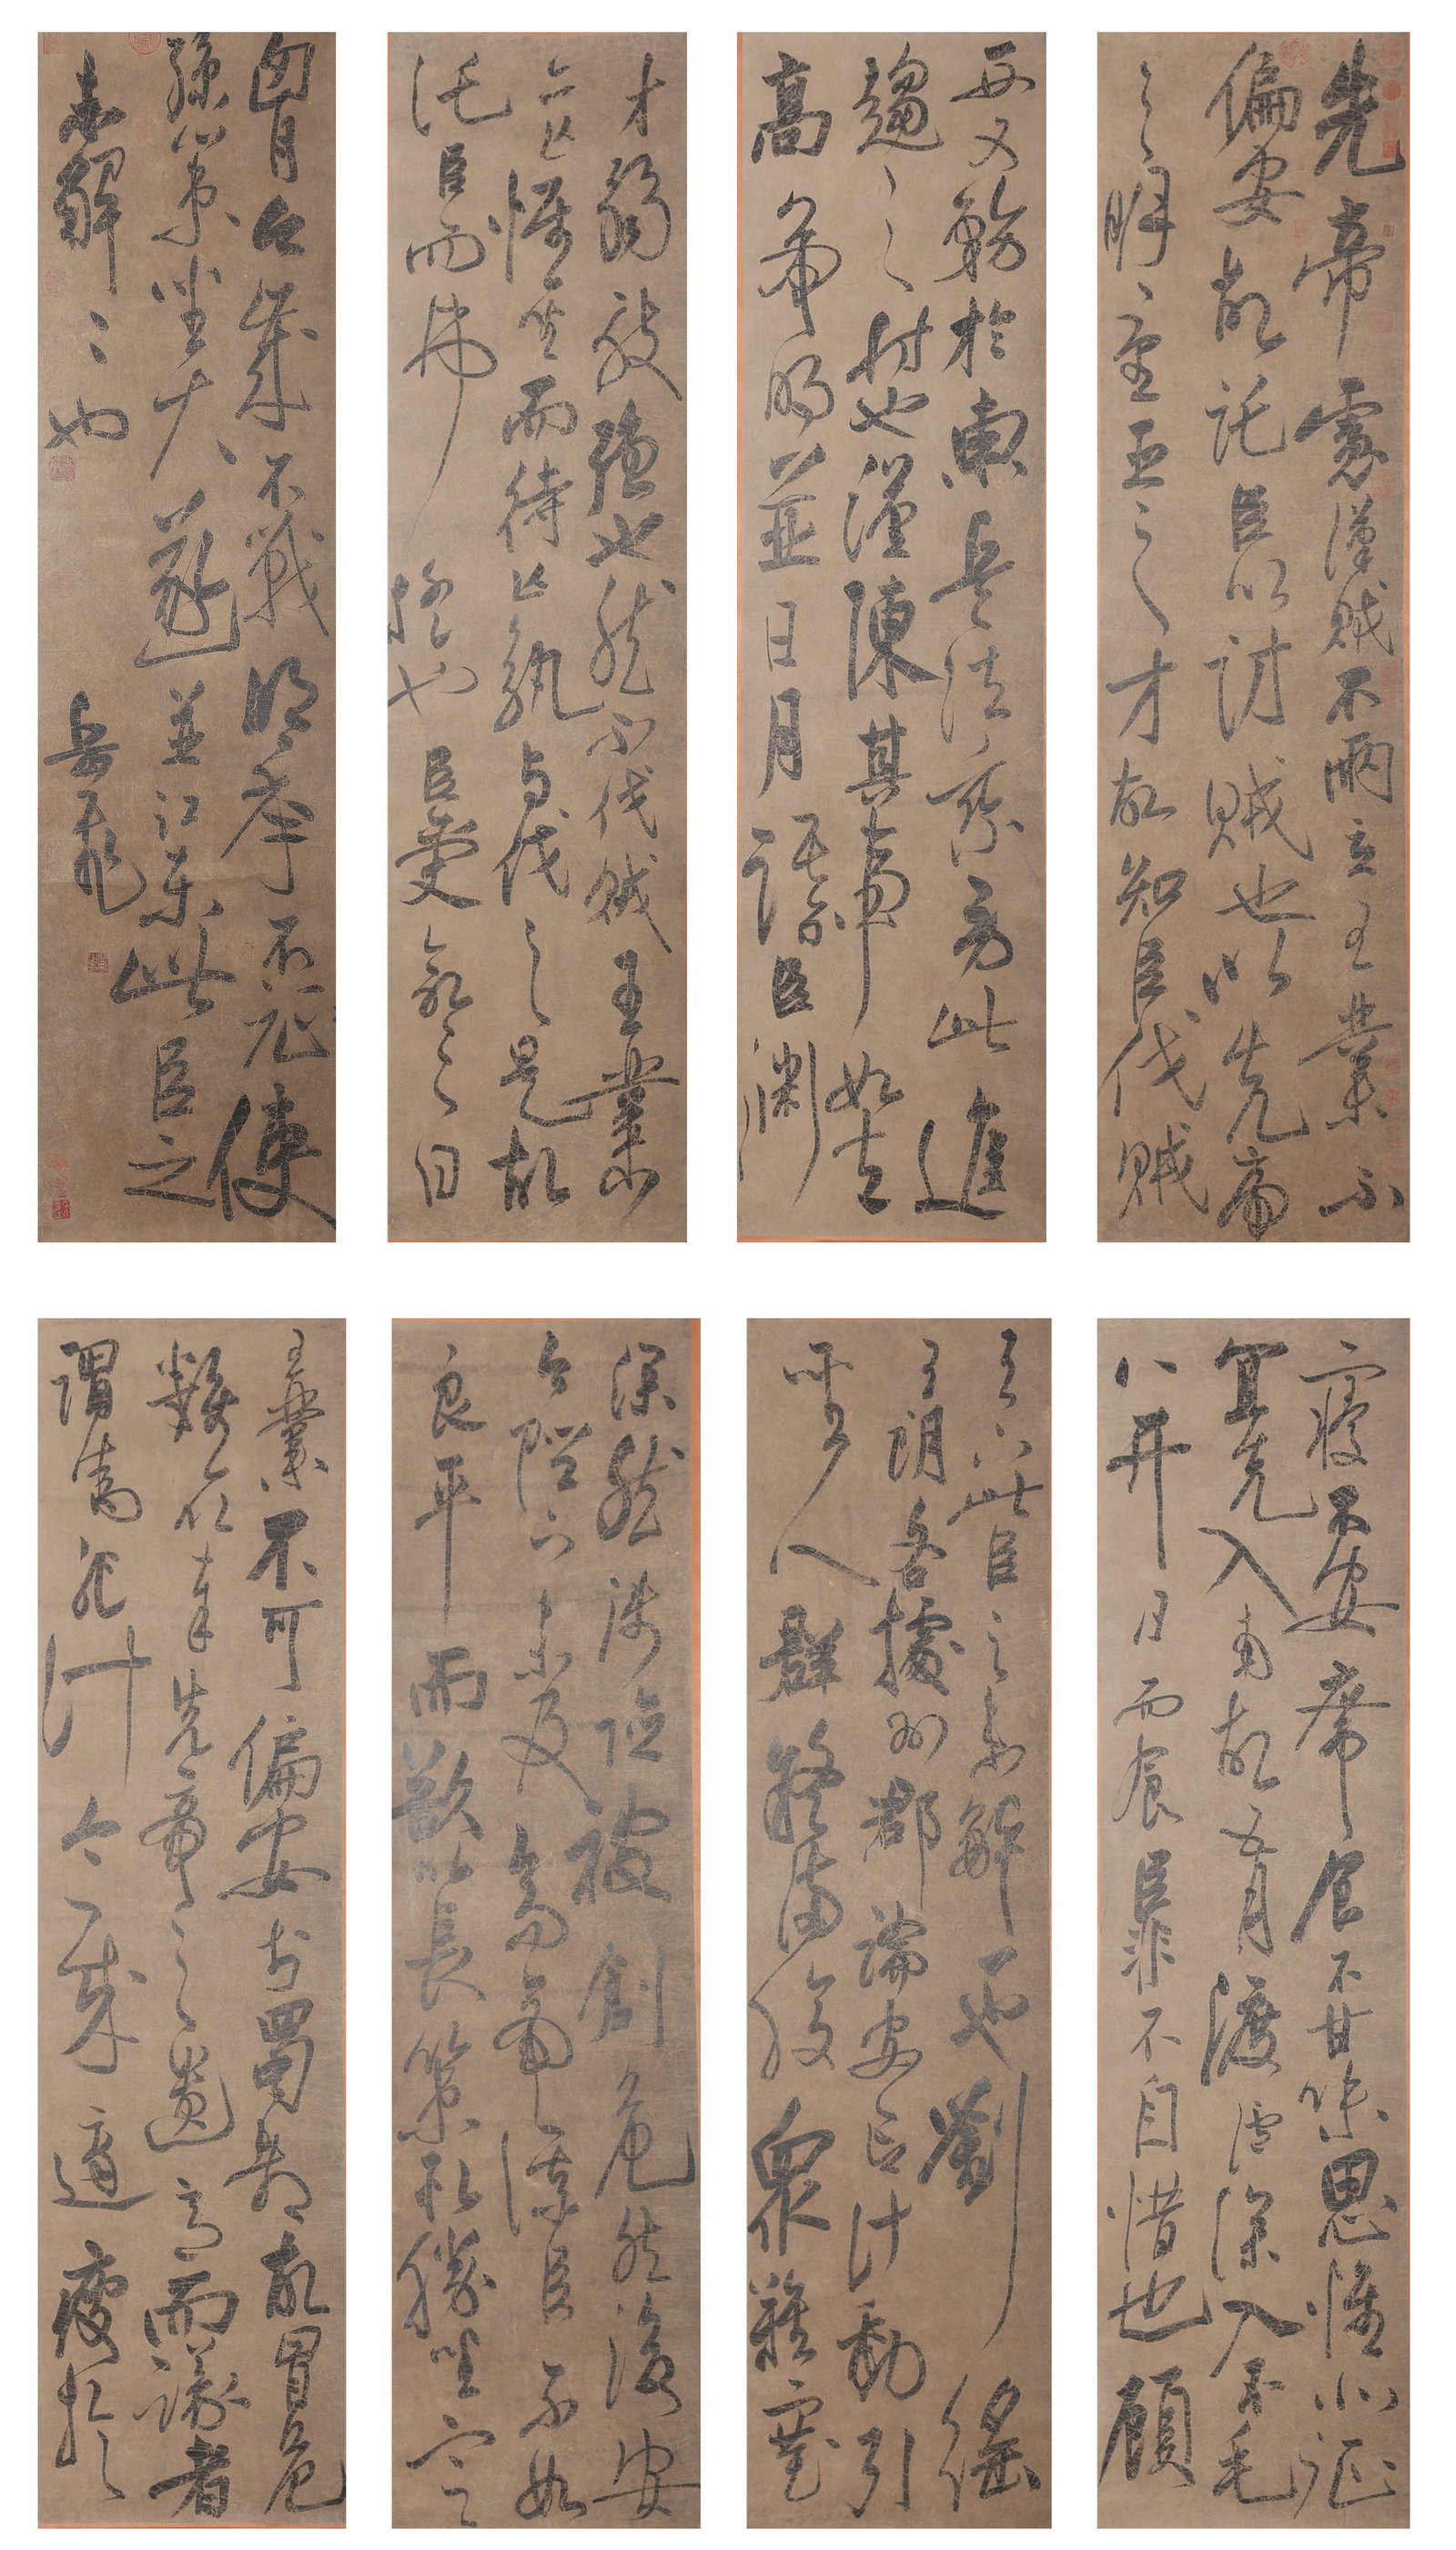 先帝慮漢賊不兩立王業不
偏安故託臣以討賊也以先帝
之明量臣之才故知臣伐賊
西又務於東兵法乘勞此進
趨之時也謹陳其事如左
高帝明並日月謀臣淵
才弱敵強也然不伐賊王業亦
亡惟坐而待亡孰與伐之是故
託臣而弗疑也臣受命之日
胷今歲不戰明年不征使
孫策坐大遂並江東此臣之
未解二也 岳飛
寢不安席食不甘味思惟北征
宜先入南故五月渡瀘深入不毛
并日而食臣非不自惜也顧
天下此臣之未解一也劉繇
王朗各據州郡論安言計動引
聖人群疑滿腹眾難塞
深然涉險被創危然後安
今陛下未及高帝謀臣不如
良平而欲以長策取勝坐定
王業不可偏安於蜀都故冒危
難以奉先帝之遺意而議者
謂為非計今賊適疲於